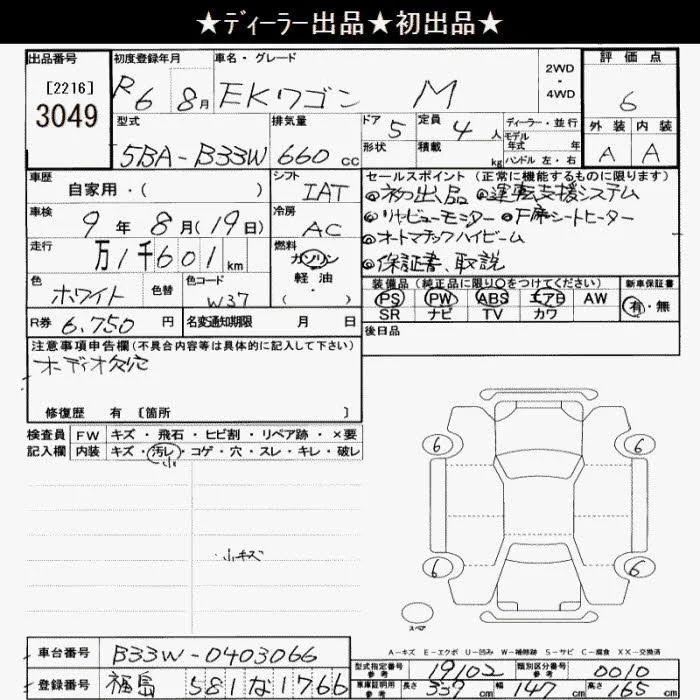 ★ディーラー出品★初出品★
出品番号 初度登録年月 車名・グレード 2WD・4WD 評価点
[2216] R6 8月 EKワゴン M 6
3049
型式 排気量 ドア 5 定員 4人 ディーラー・並行 外装 内装
5BA-B33W 660cc 形状 積載 kg モデル年式 年 A A
ハンドル 左・右
車歴 自家用・( ) シフト IAT セールスポイント (正常に機能するものに限ります)
◎初出品 ◎運転支援システム
車検 9年8月(19日) 冷房 AC ◎リヤビューモニター ◎F席シートヒーター
走行 万1千601km 燃料 ガソリン ◎オートマチックハイビーム
軽油 ◎保証書、取説
色 ホワイト 色替 色コード W37 ・( )
装備品 (純正品に限り○をつけてください) 新車保証書
PS PW ABS エアB AW 有・無
R券 6,750円 名変通知期限 月 日 SR ナビ TV カワ
後日品
注意事項申告欄(不具合内容等は具体的に記入して下さい)
オーディオ欠穴
修復歴 有 [箇所 ]
検査員 FW キズ・飛石・ヒビ割・リペア跡・×要
記入欄 内装 キズ・汚レ・コゲ・穴・スレ・キレ・破レ
小
6 6
小キズ
6 6
スペア
A-キズ E-エクボ U-凹み W-補修跡 S-サビ C-腐食 XX-交換済
車台番号 B33W-0403066
型式指定番号 参考 19102 類別区分番号 参考 0010
登録番号 福島 581 な 1766
車庫証明用 参考 長さ 339cm 幅 147cm 高さ 165cm